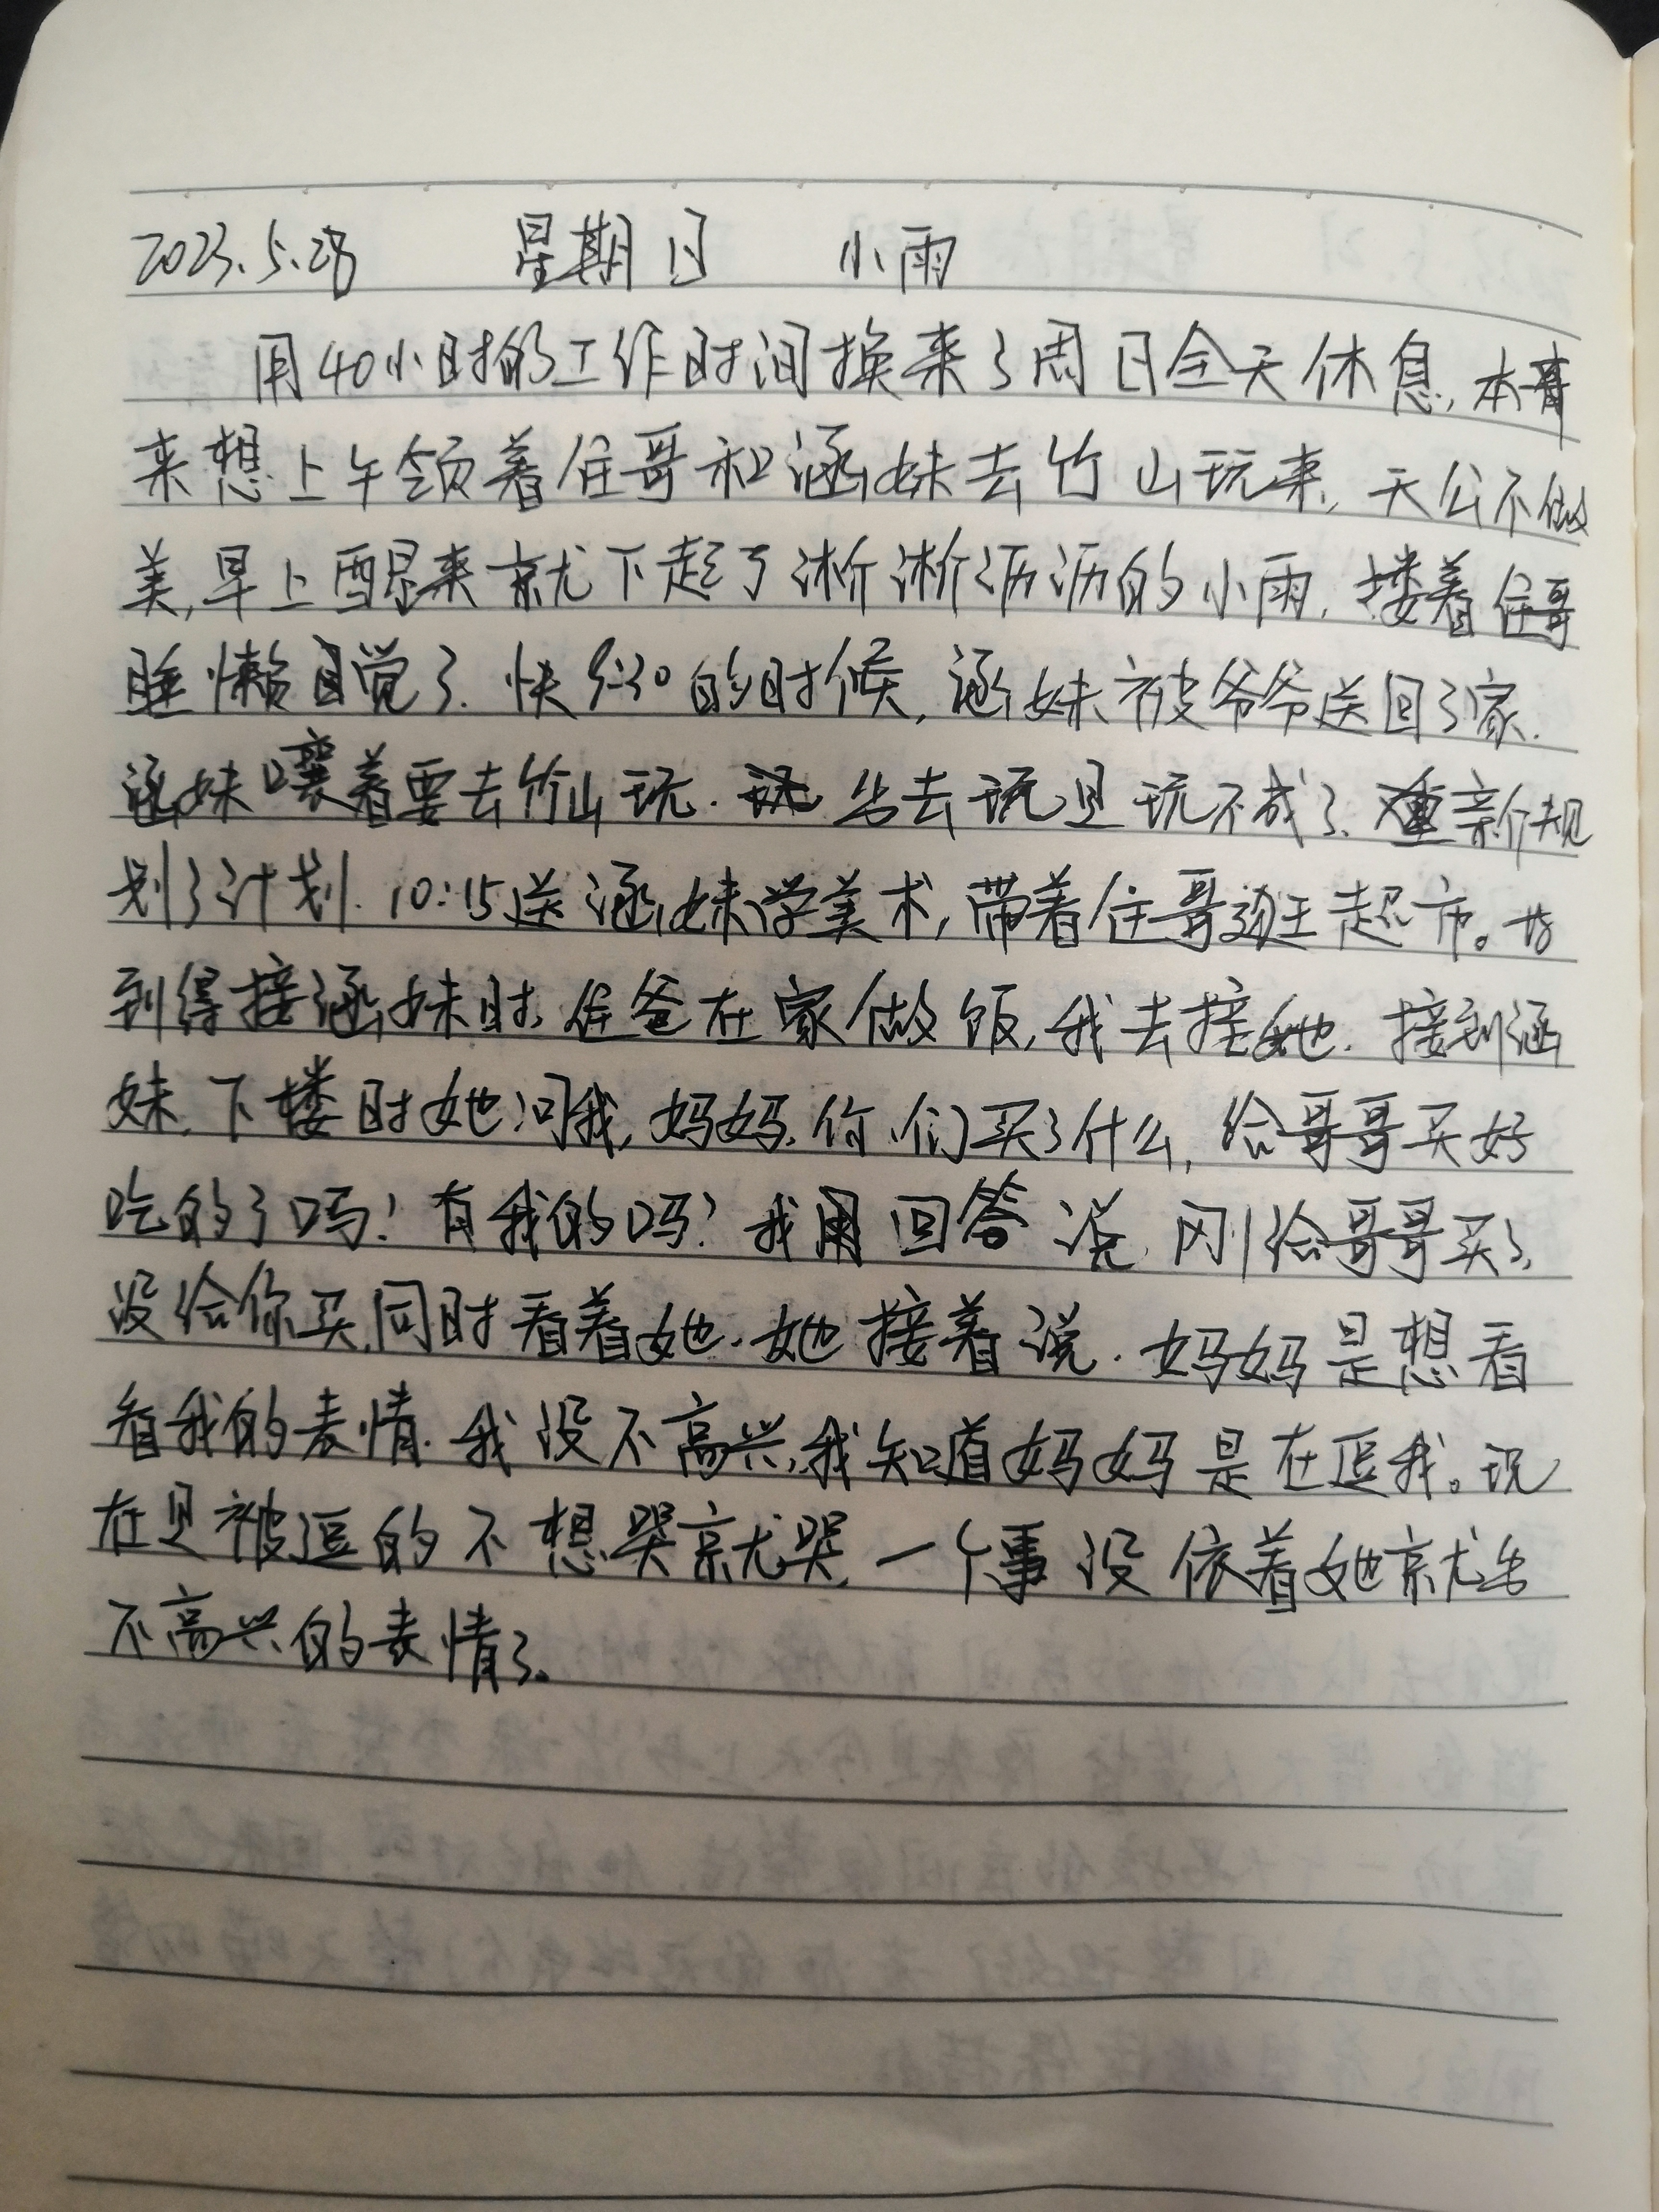 2023.5.28 星期日 小雨
用40小时的工作时间换来了周日全天休息,本
来想上午领着佳哥和涵妹去竹山玩来,天公不做
美,早上醒来就下起了淅淅沥沥的小雨,搂着佳哥
睡懒觉了.快9:30的时候,涵妹被爷爷送回了家.
涵妹嚷着要去竹山玩.出去玩是玩不成了、重新规
划了计划.10:15送涵妹学美术,带着佳哥逛超市。
到得接涵妹时,佳爸在家做饭,我去接她.接到涵
妹,下楼时她问我,妈妈,你们买了什么,给哥哥买好
吃的了吗?有我的吗?我回答说,刚给哥哥买了,
没给你买,同时看着她.她接着说.妈妈是想看
看我的表情.我没不高兴,我知道妈妈是在逗我。现
在是被逗的不想哭就哭,一个事没依着她就出
不高兴的表情了。